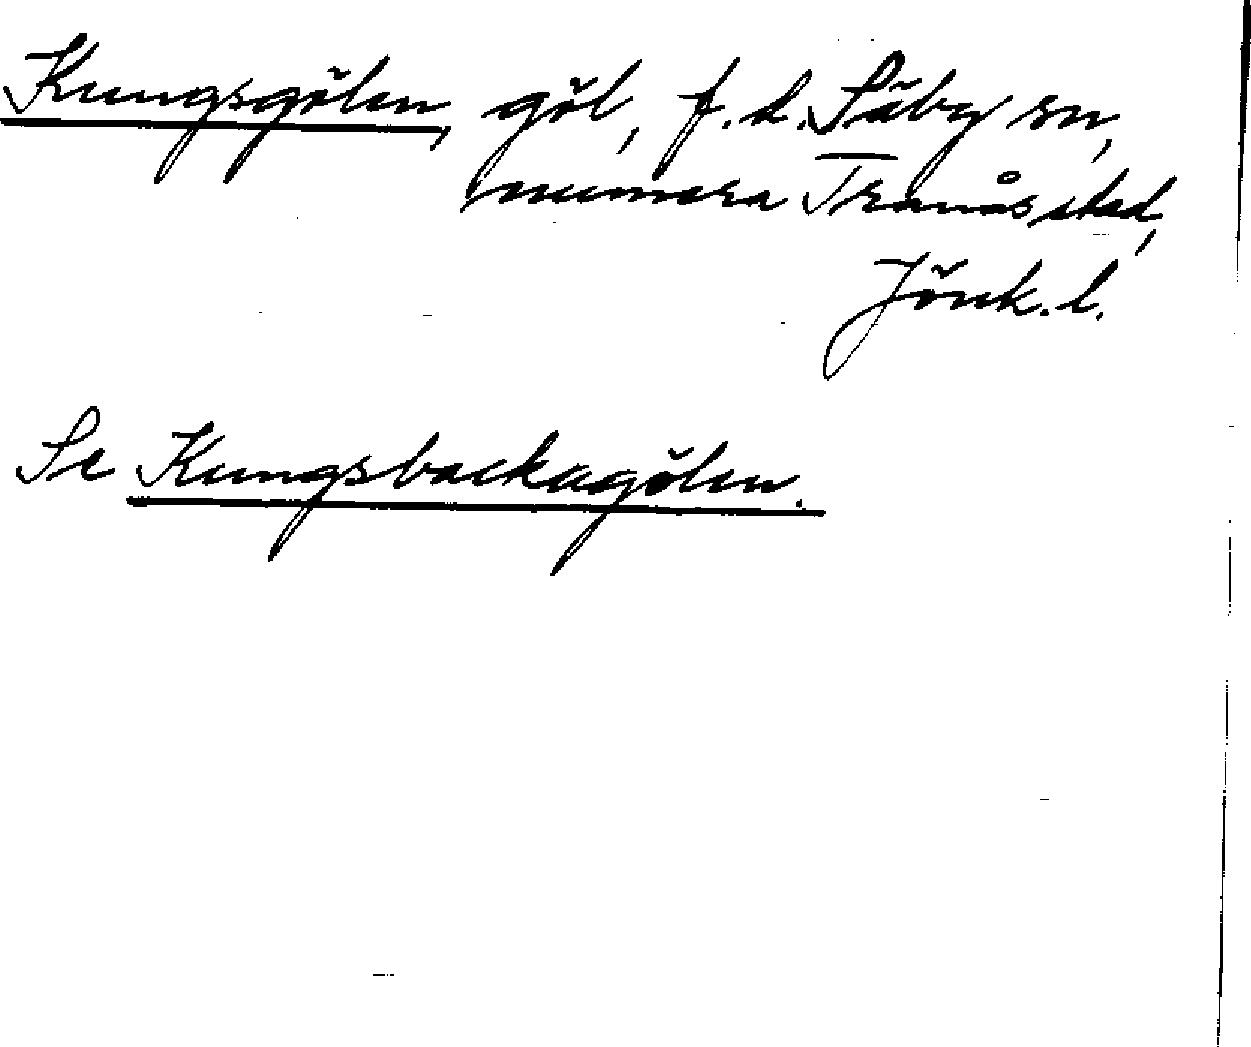 Kungsgölen, göl, f.d. Säby sn,
numera Tranås stad,
Jönk.l.
Se Kungsbackagölen.